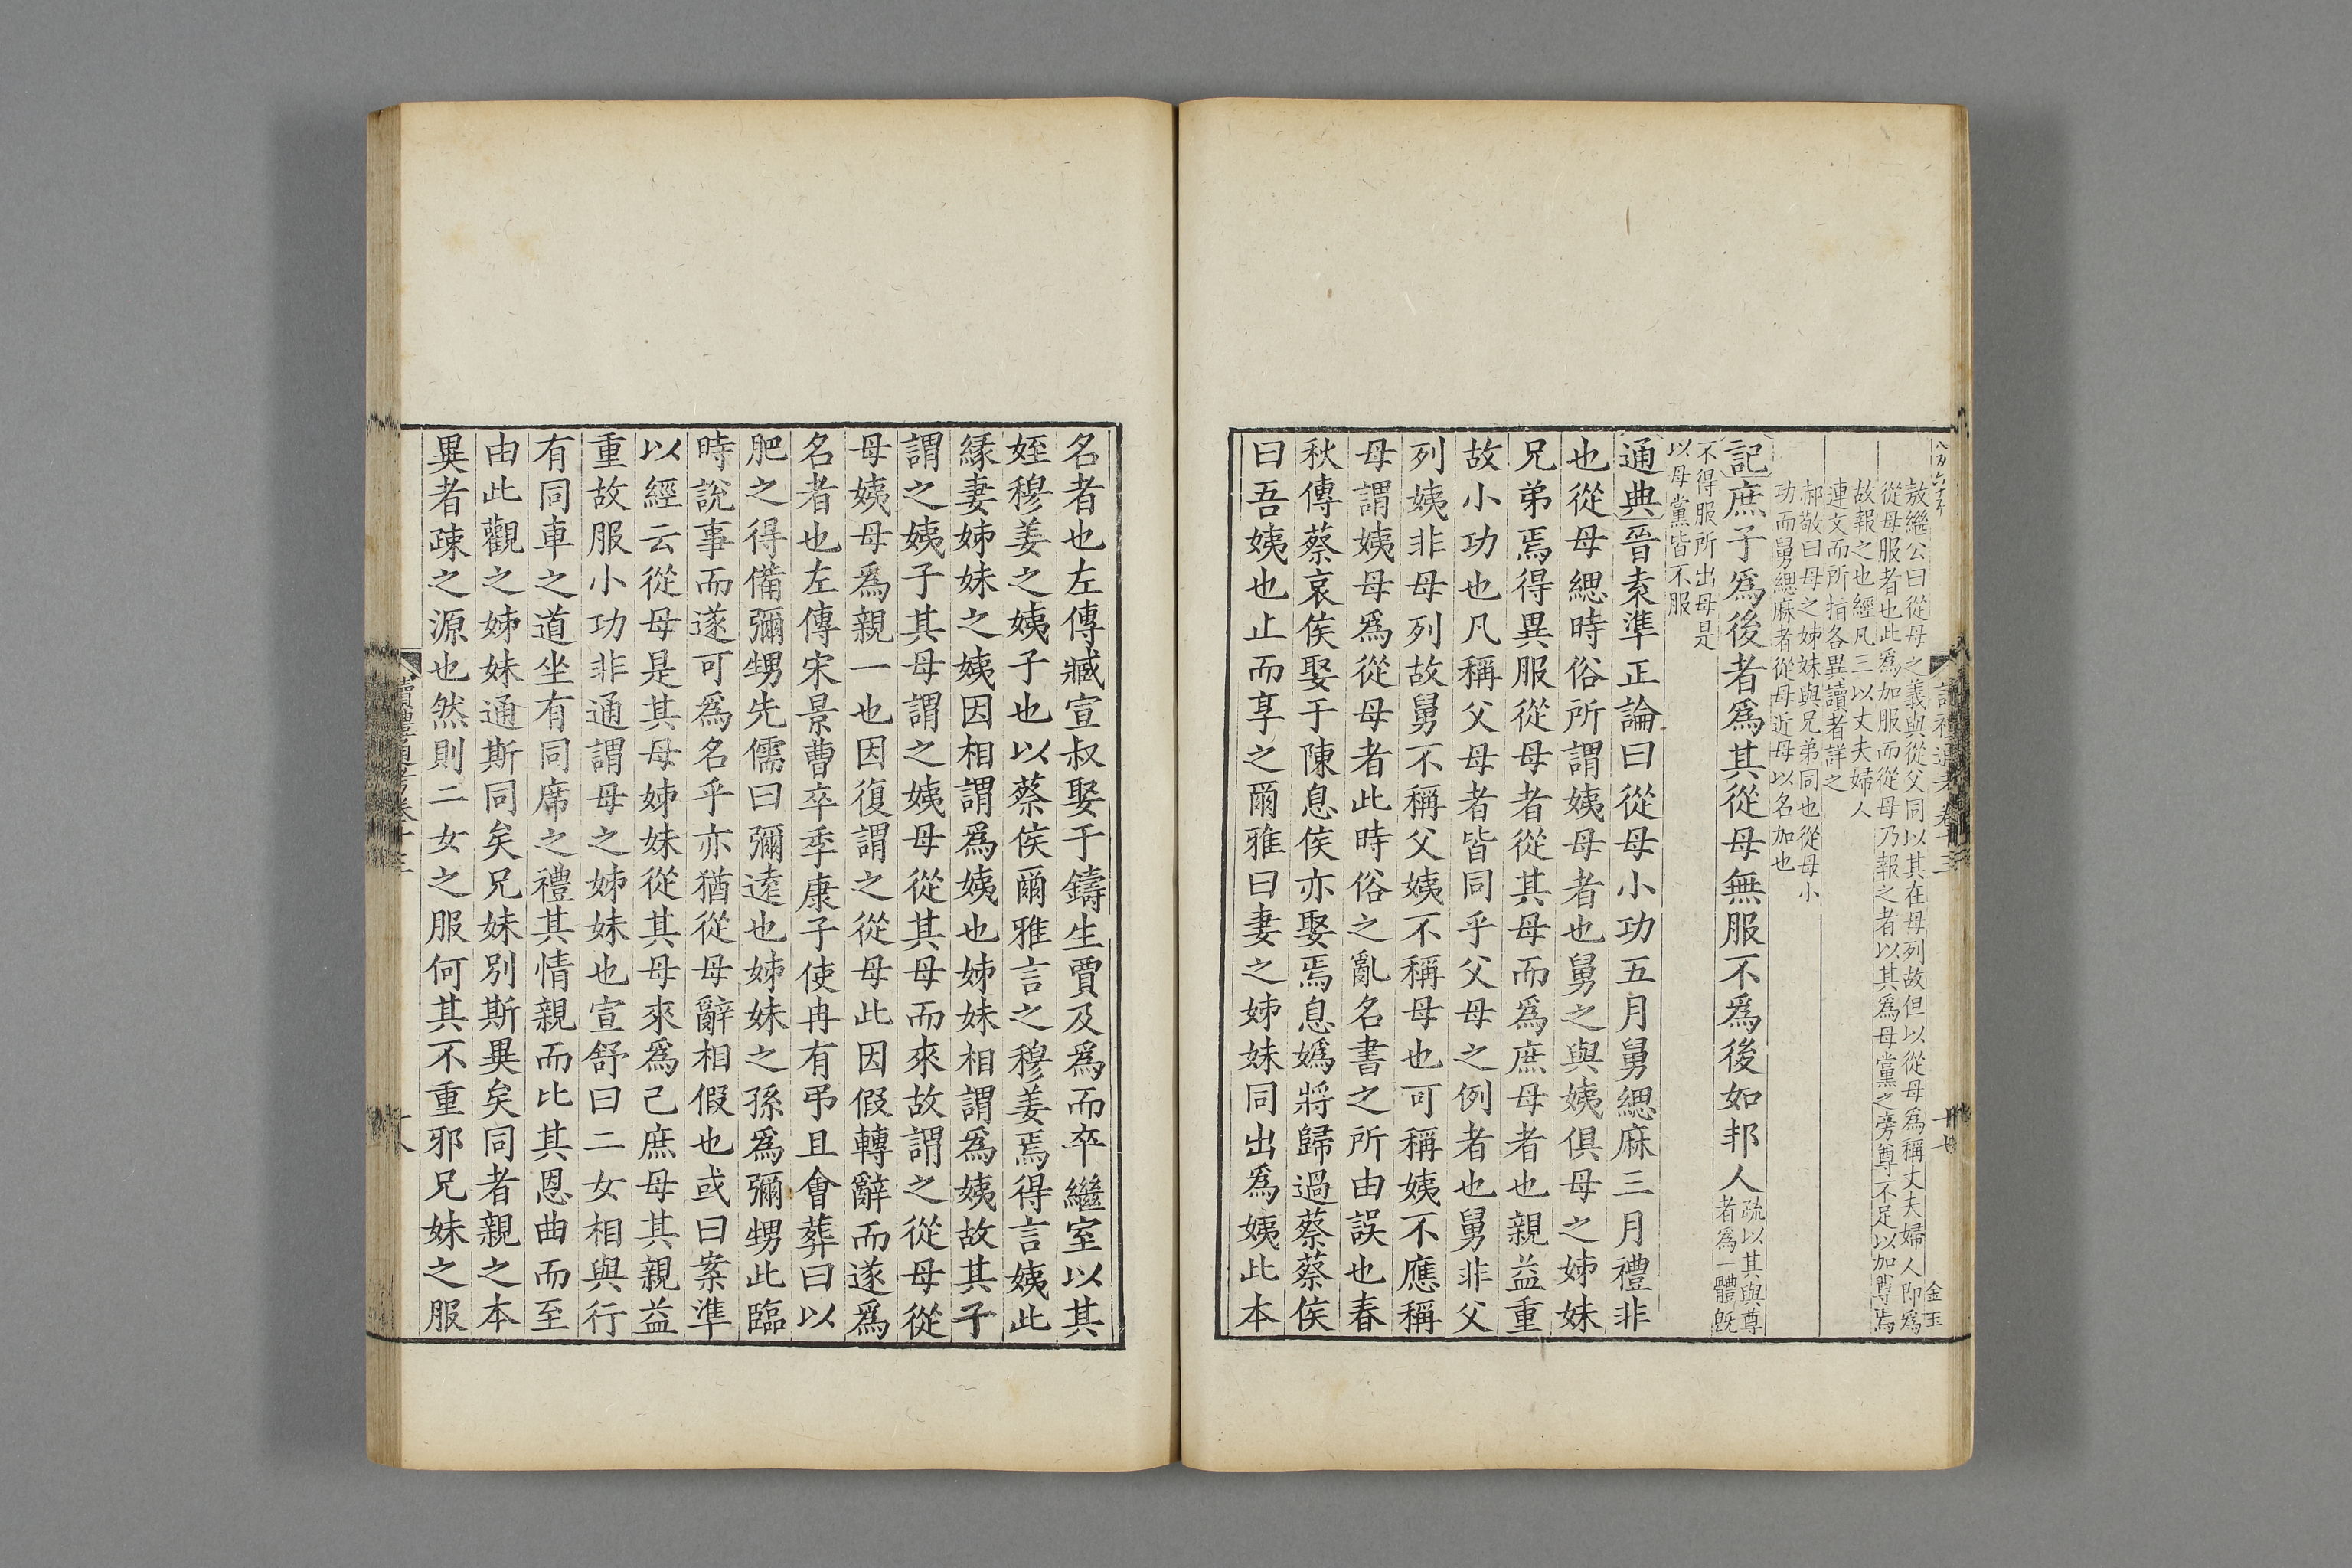 敖繼公曰從母之義與從父同以其在母列故但以從母爲稱丈夫婦人即爲
從母服者也此爲加服而從母乃報之者以其爲母黨之旁尊不足以加尊焉
故報之也經凡三以丈夫婦人
連文而所指各異讀者詳之
郝敬曰母之姊妹與兄弟同也從母小
功而舅緦麻者從母近母以名加也
記庶子爲後者爲其從母無服不爲後如邦人
疏以其與尊
者爲一體旣
不得服所出母是
以母黨皆不服
通典晉袁準正論曰從母小功五月舅緦麻三月禮非
也從母緦時俗所謂姨母者也舅之與姨俱母之姊妹
兄弟焉得異服從母者從其母而爲庶母者也親益重
故小功也凡稱父母者皆同乎父母之例者也舅非父
列姨非母列故舅不稱父姨不稱母也可稱姨不應稱
母謂姨母爲從母者此時俗之亂名書之所由誤也春
秋傳蔡哀侯娶于陳息侯亦娶焉息嬀將歸過蔡蔡侯
曰吾姨也止而享之爾雅曰妻之姊妹同出爲姨此本
讀禮通考 卷十三
金玉
名者也左傳臧宣叔娶于鑄生賈及爲而卒繼室以其
姪穆姜之姨子也以蔡侯爾雅言之穆姜焉得言姨此
緣妻姊妹之姨因相謂爲姨也姊妹相謂爲姨故其子
謂之姨子其母謂之姨母從其母而來故謂之從母從
母姨母爲親一也因復謂之從母此因假轉辭而遂爲
名者也左傳宋景曹卒季康子使冉有弔且會葬曰以
肥之得備彌甥先儒曰彌遠也姊妹之孫爲彌甥此臨
時說事而遂可爲名乎亦猶從母辭相假也或曰案準
以經云從母是其母姊妹從其母來爲己庶母其親益
重故服小功非通謂母之姊妹也宣舒曰二女相與行
有同車之道坐有同席之禮其情親而比其恩曲而至
由此觀之姊妹通斯同矣兄妹別斯異矣同者親之本
異者疎之源也然則二女之服何其不重邪兄妹之服
讀禮通考卷十三